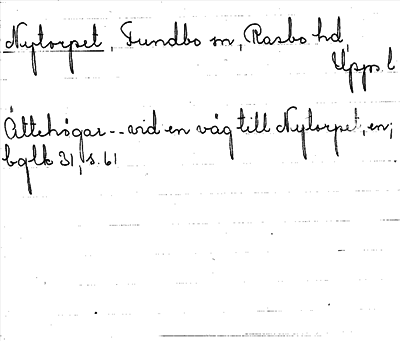 Nytorpet, Fundbo sn, Rasbo hd,
Upps. l
Ättehögar -- vid en väg till Nytorpet, en;
bqlk 31, s. 61